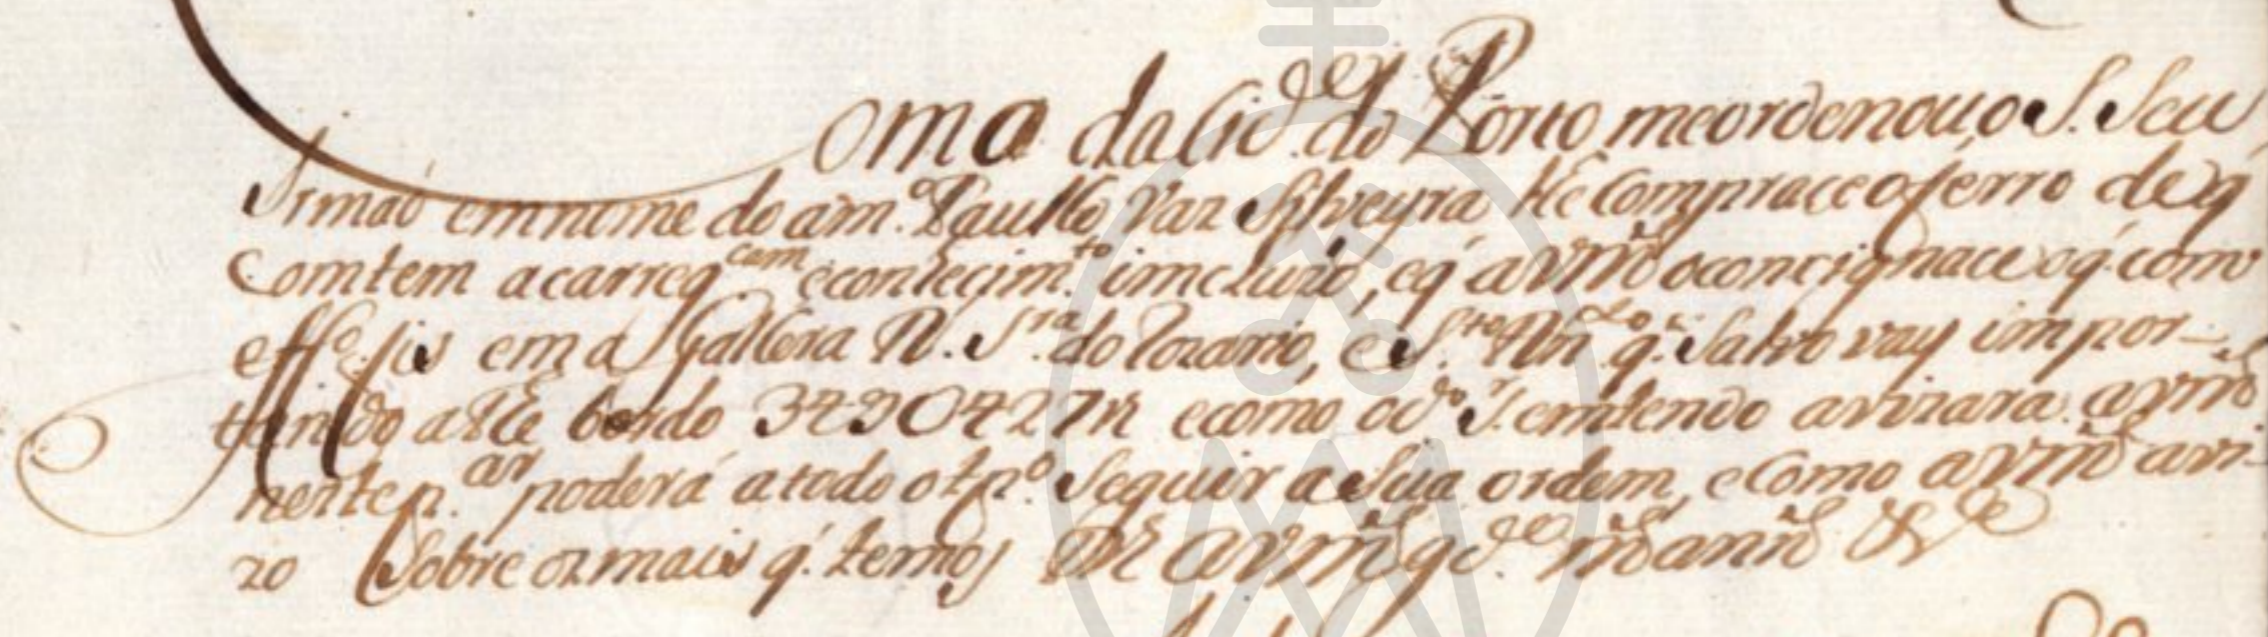 oma da Cid.e do Porto me ordenou o S. Seu
Irmaõ em nome do am.o Paullo Vaz Silveyra lhe Comprace o ferro de q
Comtem a carreg.cam e conhecim.to imcluzo, e q́ a VM o concignace o q́ como
eff.o fis em a Gallera N. S.ra do Rozario, e S.to q́. Salvo vay impor-
tando athe bordo 3490427r ecomo o d.o S. emtendo avizara a VM
nesta p.ar poderá a todo o tp.o seguir a Sua ordem, e Como a VM avi-
zo Sobre oz mais q́. temos Ds a VM g.de m annos &